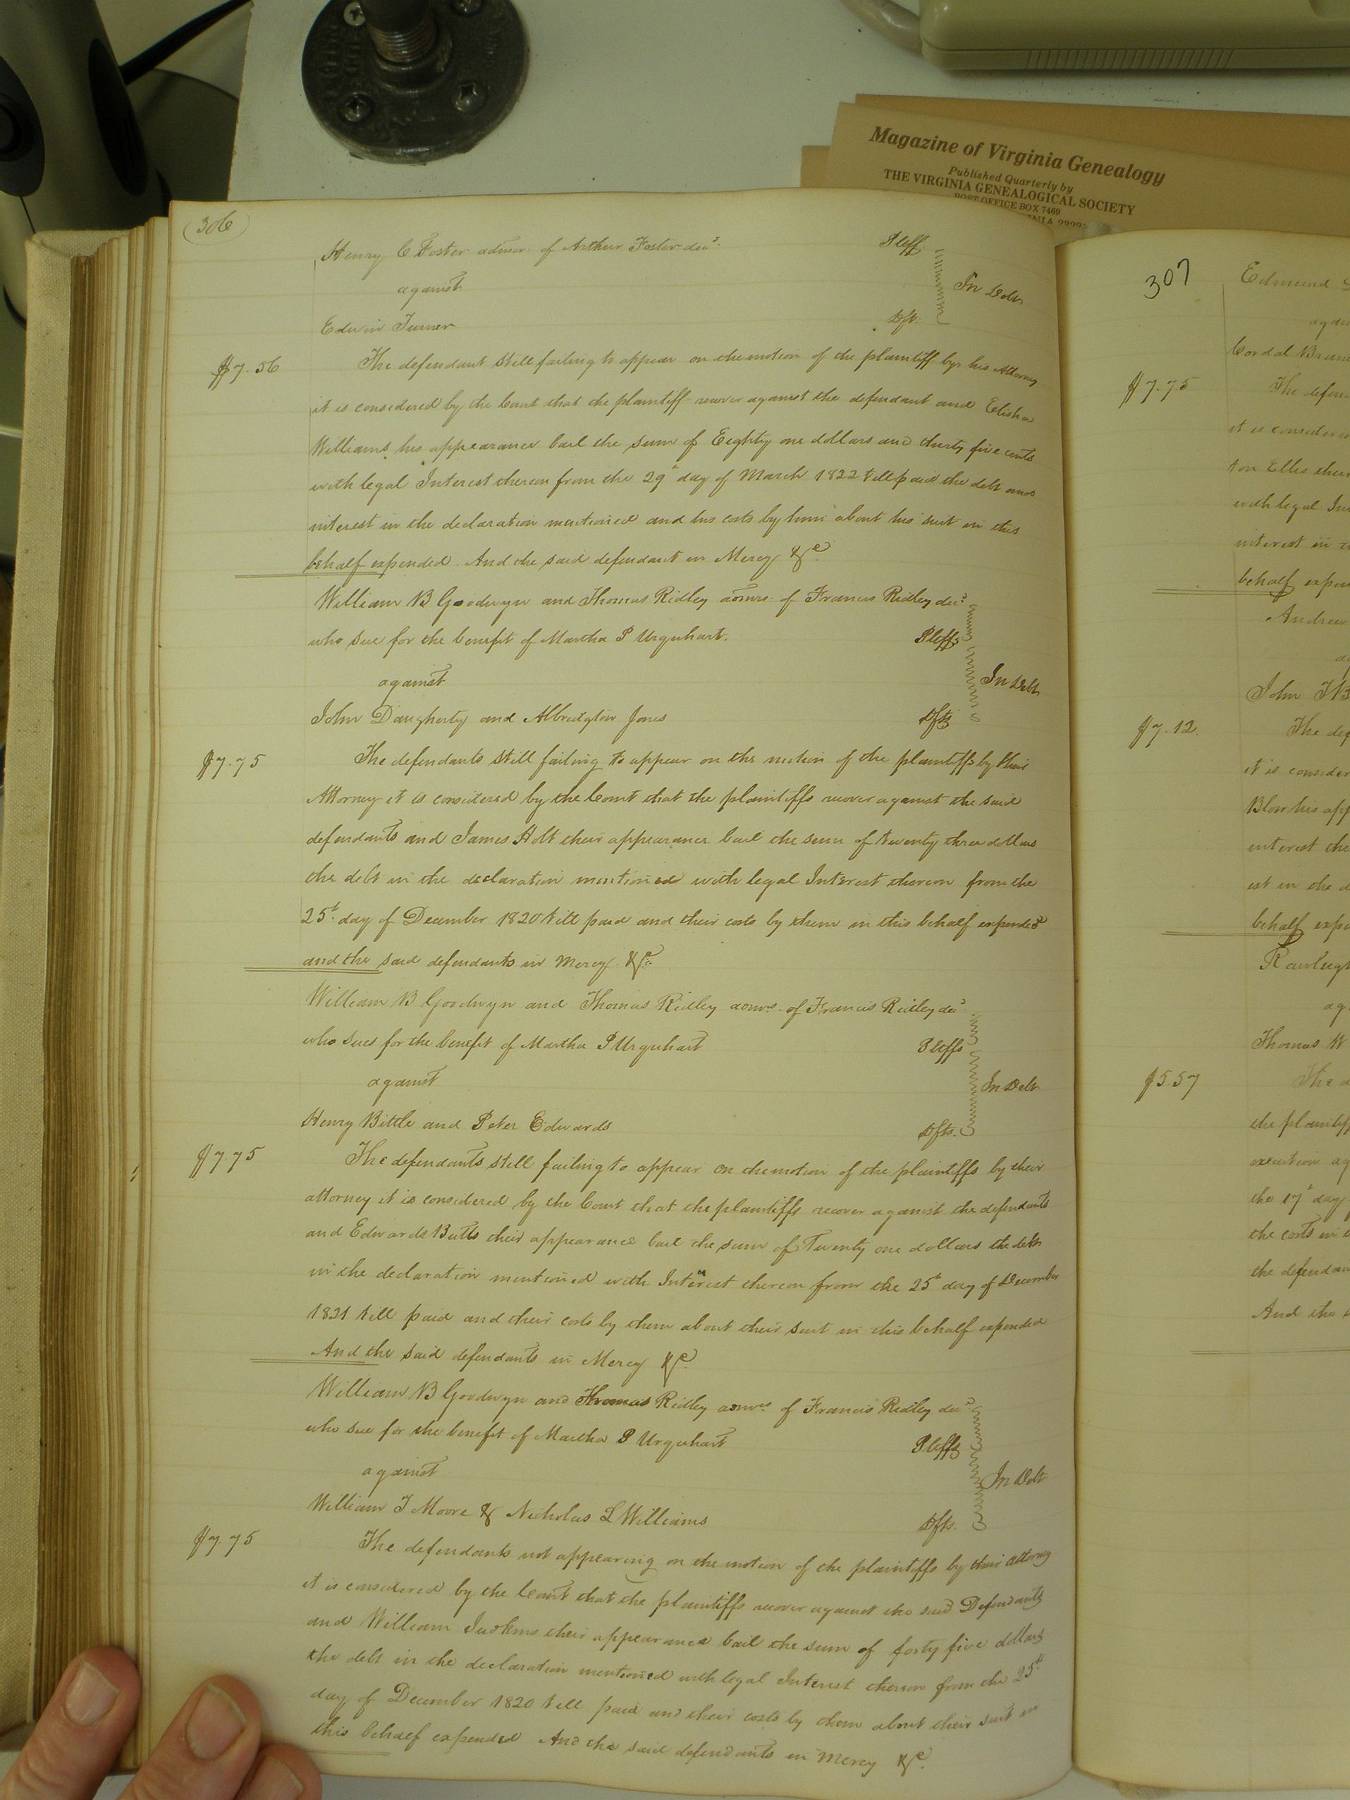 Magazine of Virginia Genealogy
Published Quarterly by
THE VIRGINIA GENEALOGICAL SOCIETY
POST OFFICE BOX 7469
306
Henry C Foster admor of Arthur Foster decd. Pltff
against In Debt
Edwin Turner Dft.
$7.56 The defendant still failing to appear on the motion of the plaintiff by his Attorney
it is considered by the Court that the plaintiff recover against the defendant and Elisha
Williams his appearance bail the sum of Eighty one dollars and thirty five cents
with legal Interest thereon from the 29th day of March 1822 till paid the debt and
interest in the declaration mentioned and his costs by him about his suit in this
behalf expended. And the said defendant in Mercy &c.
William B Goodwyn and Thomas Ridley admrs. of Francis Ridley decd.
who sue for the benefit of Martha P Urquhart. Pltffs
against In Debt
John Daugherty and Albridgton Jones Dfts
$7.75 The defendants still failing to appear on the motion of the plaintiffs by their
Attorney it is considered by the Court that the plaintiffs recover against the said
defendants and James Holt their appearance bail the sum of twenty three dollars
the debt in the declaration mentioned with legal Interest thereon from the
25th. day of December 1820 till paid and their costs by them in this behalf expended
and the said defendants in Mercy &c.
William B Goodwyn and Thomas Ridley admrs. of Francis Ridley decd
who sues for the benefit of Martha P Urquhart Pltffs
against In Debt
Henry Bittle and Peter Edwards Dfts.
$7.75 The defendants still failing to appear on the motion of the plaintiffs by their
attorney it is considered by the Court that the plaintiffs recover against the defendants
and Edwards Butts their appearance bail the sum of Twenty one dollars the debt
in the declaration mentioned with Interest thereon from the 25th day of December
1821 till paid and their costs by them about their suit in this behalf expended
And the said defendants in Mercy &c
William B Goodwyn and Thomas Ridley admrs of Francis Ridley decd.
who sue for the benefit of Martha P Urquhart Pltffs
against In Debt
William T Moore & Nicholas L Williams Dfts.
$7.75 The defendants not appearing on the motion of the plaintiffs by their attorney
it is considered by the Court that the plaintiffs recover against the said Defendants
and William Judkins their appearance bail the sum of forty five dollars
the debt in the declaration mentioned with legal Interest thereon from the 25th
day of December 1820 till paid and their costs by them about their suit in
this behalf expended And the said defendants in Mercy &c.
307
Edmund
$7.75 The
it is
ton Ellis
with legal
interest in
behalf
Andrew
John
$7.12. The
it is
Blow his
interest
est in the
behalf
Thomas W
$5.57 The
the
execution
the 17th day
the costs in
the
And the